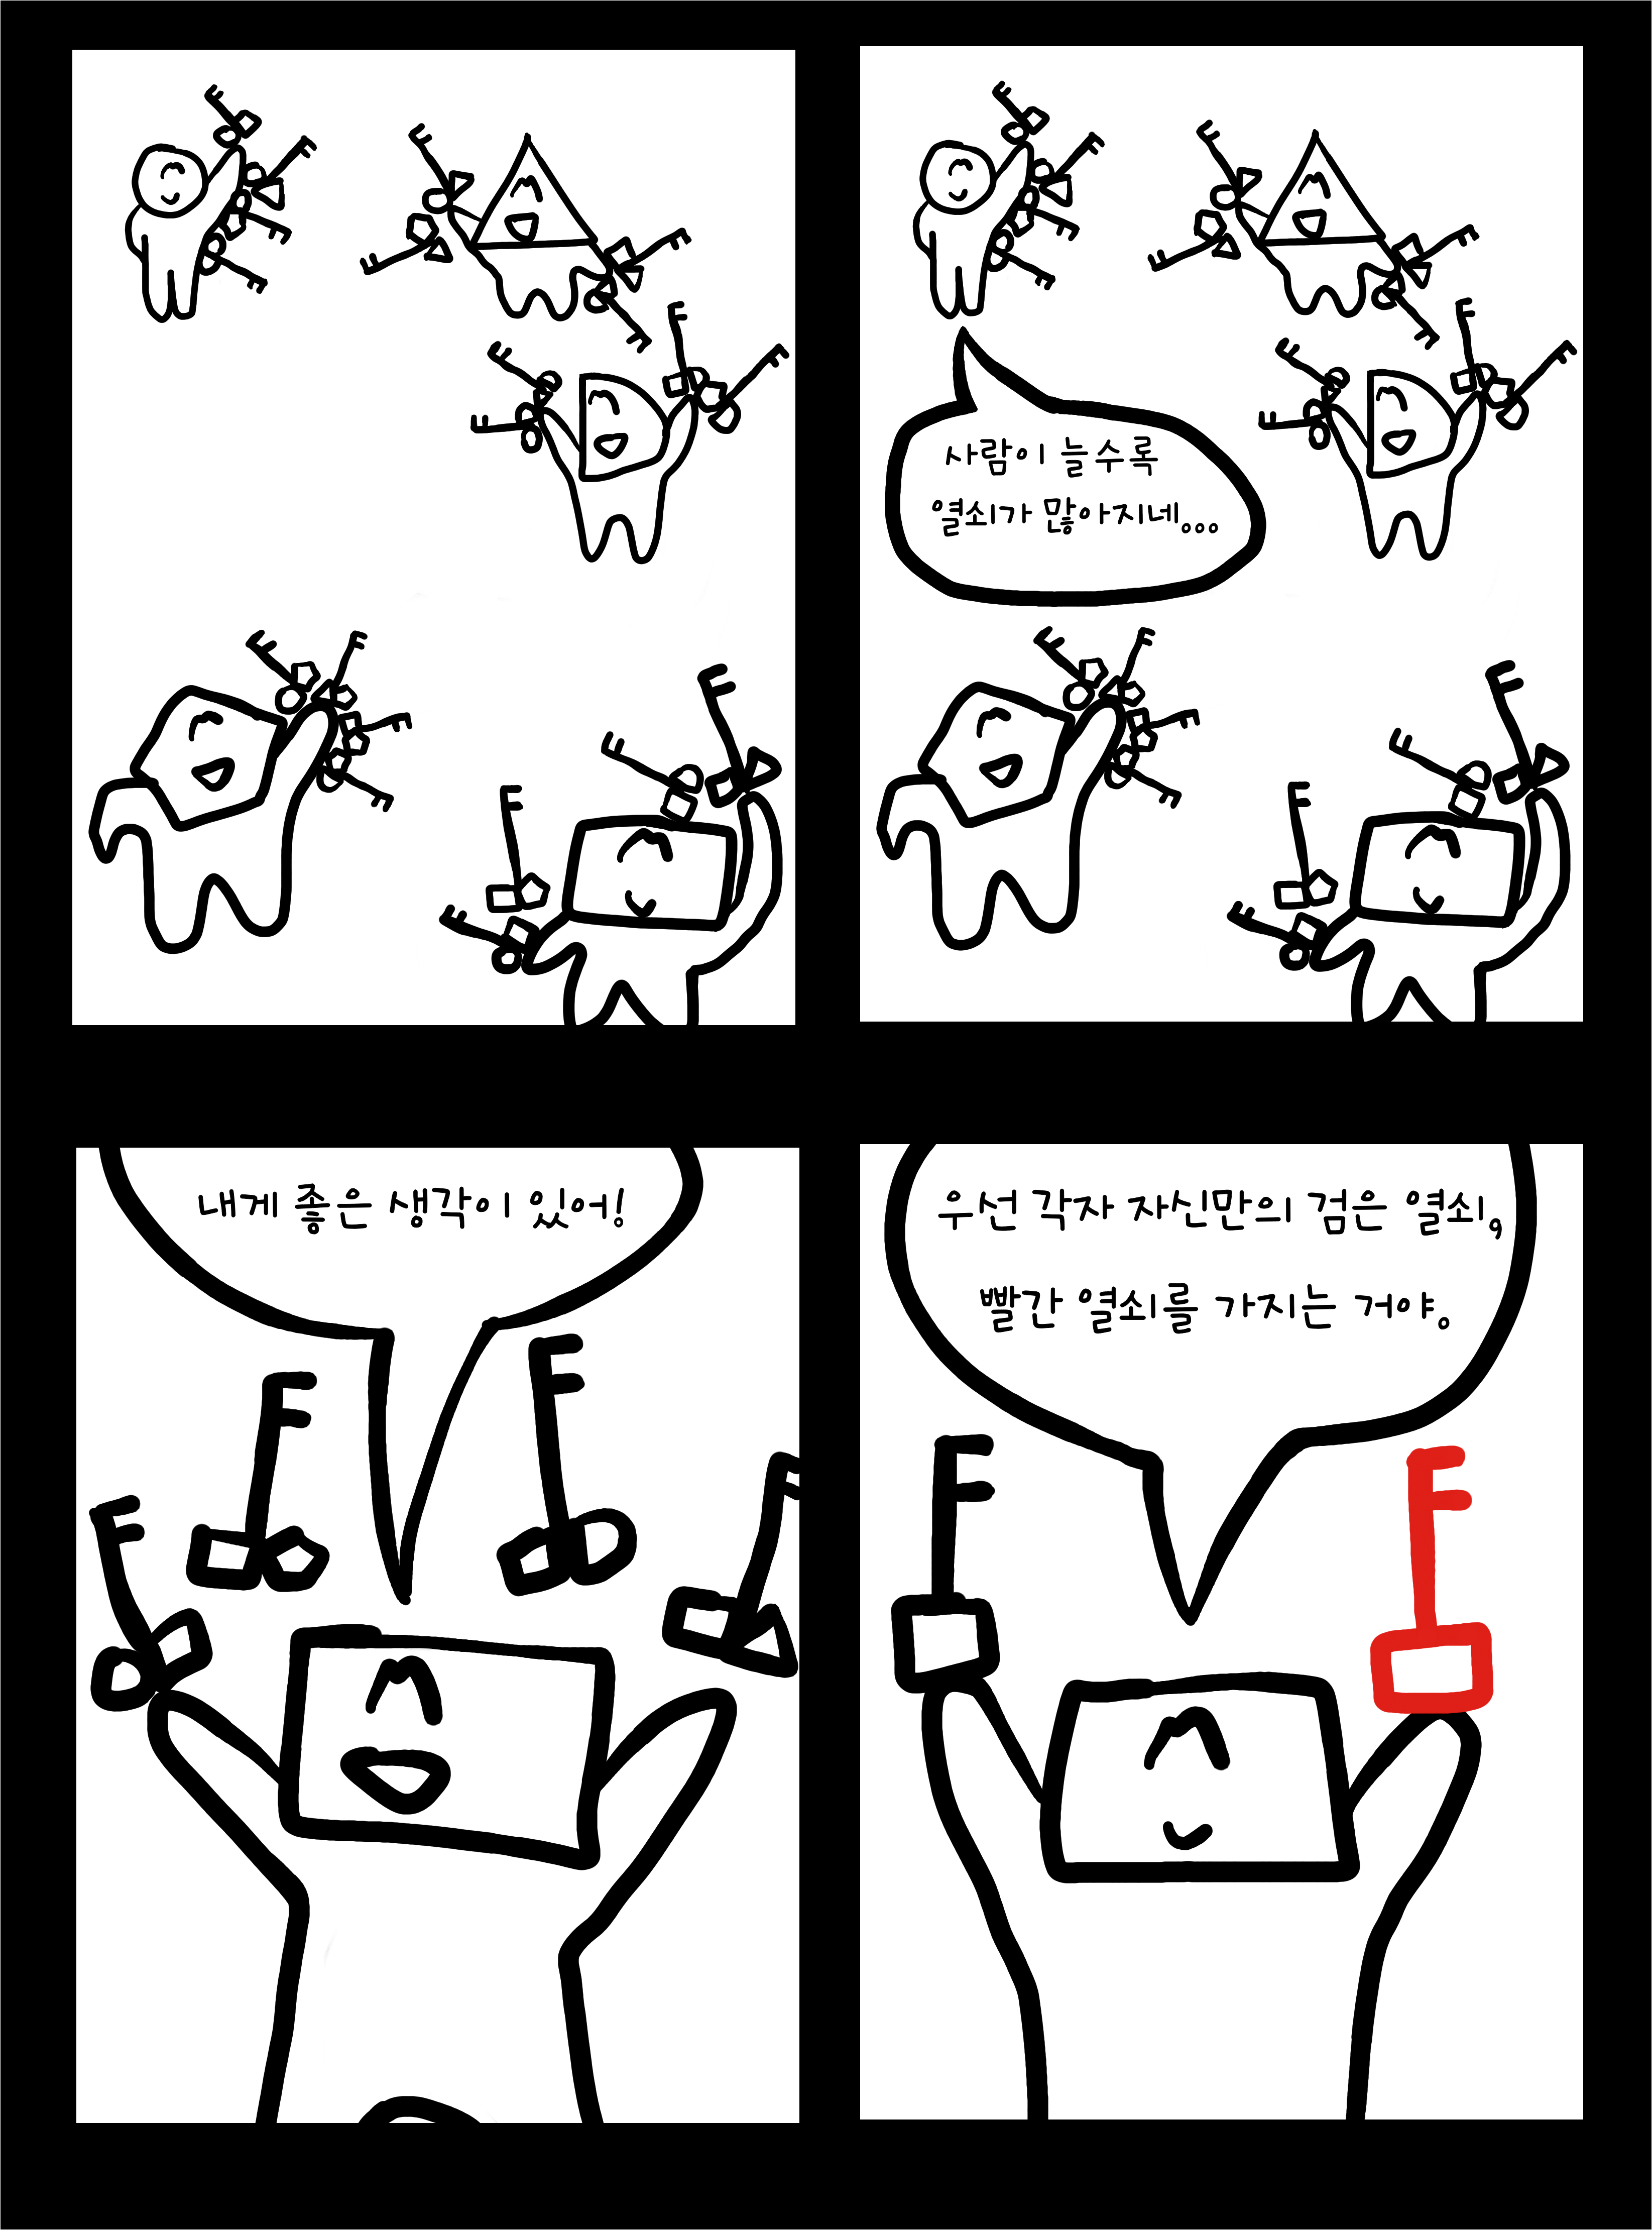 사람이 늘수록
열쇠가 많아지네...
내게 좋은 생각이 있어!
우선 각자 자신만의 검은 열쇠,
빨간 열쇠를 가지는 거야.